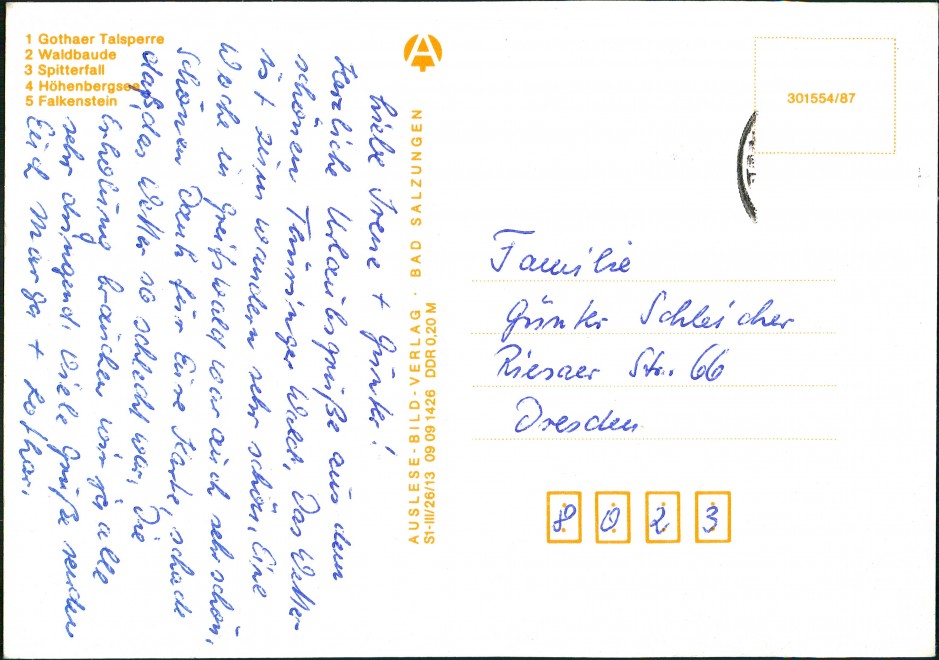 1 Gothaer Talsperre
2 Waldbaude
3 Spitterfall
4 Höhenbergsee
5 Falkenstein
Liebe Irene + Günter!
Herzliche Urlaubsgrüße aus dem
schönen Thüringer Wald. Das Wetter
ist zum wandern sehr schön. Eine
Woche in Greifswald war auch sehr schön.
Schönen Dank für Eure Karte, schade
daß das Wetter so schlecht war, Die
Erholung brauchen wir ja alle
sehr dringend. Viele Grüße senden
Euch Marga + Lothar.
AUSLESE-BILD-VERLAG · BAD SALZUNGEN
S1-III/26/13 09 09 1426 DDR 0,20 M
301554/87
Familie
Günter Schleicher
Riesaer Str. 66
Dresden
8023